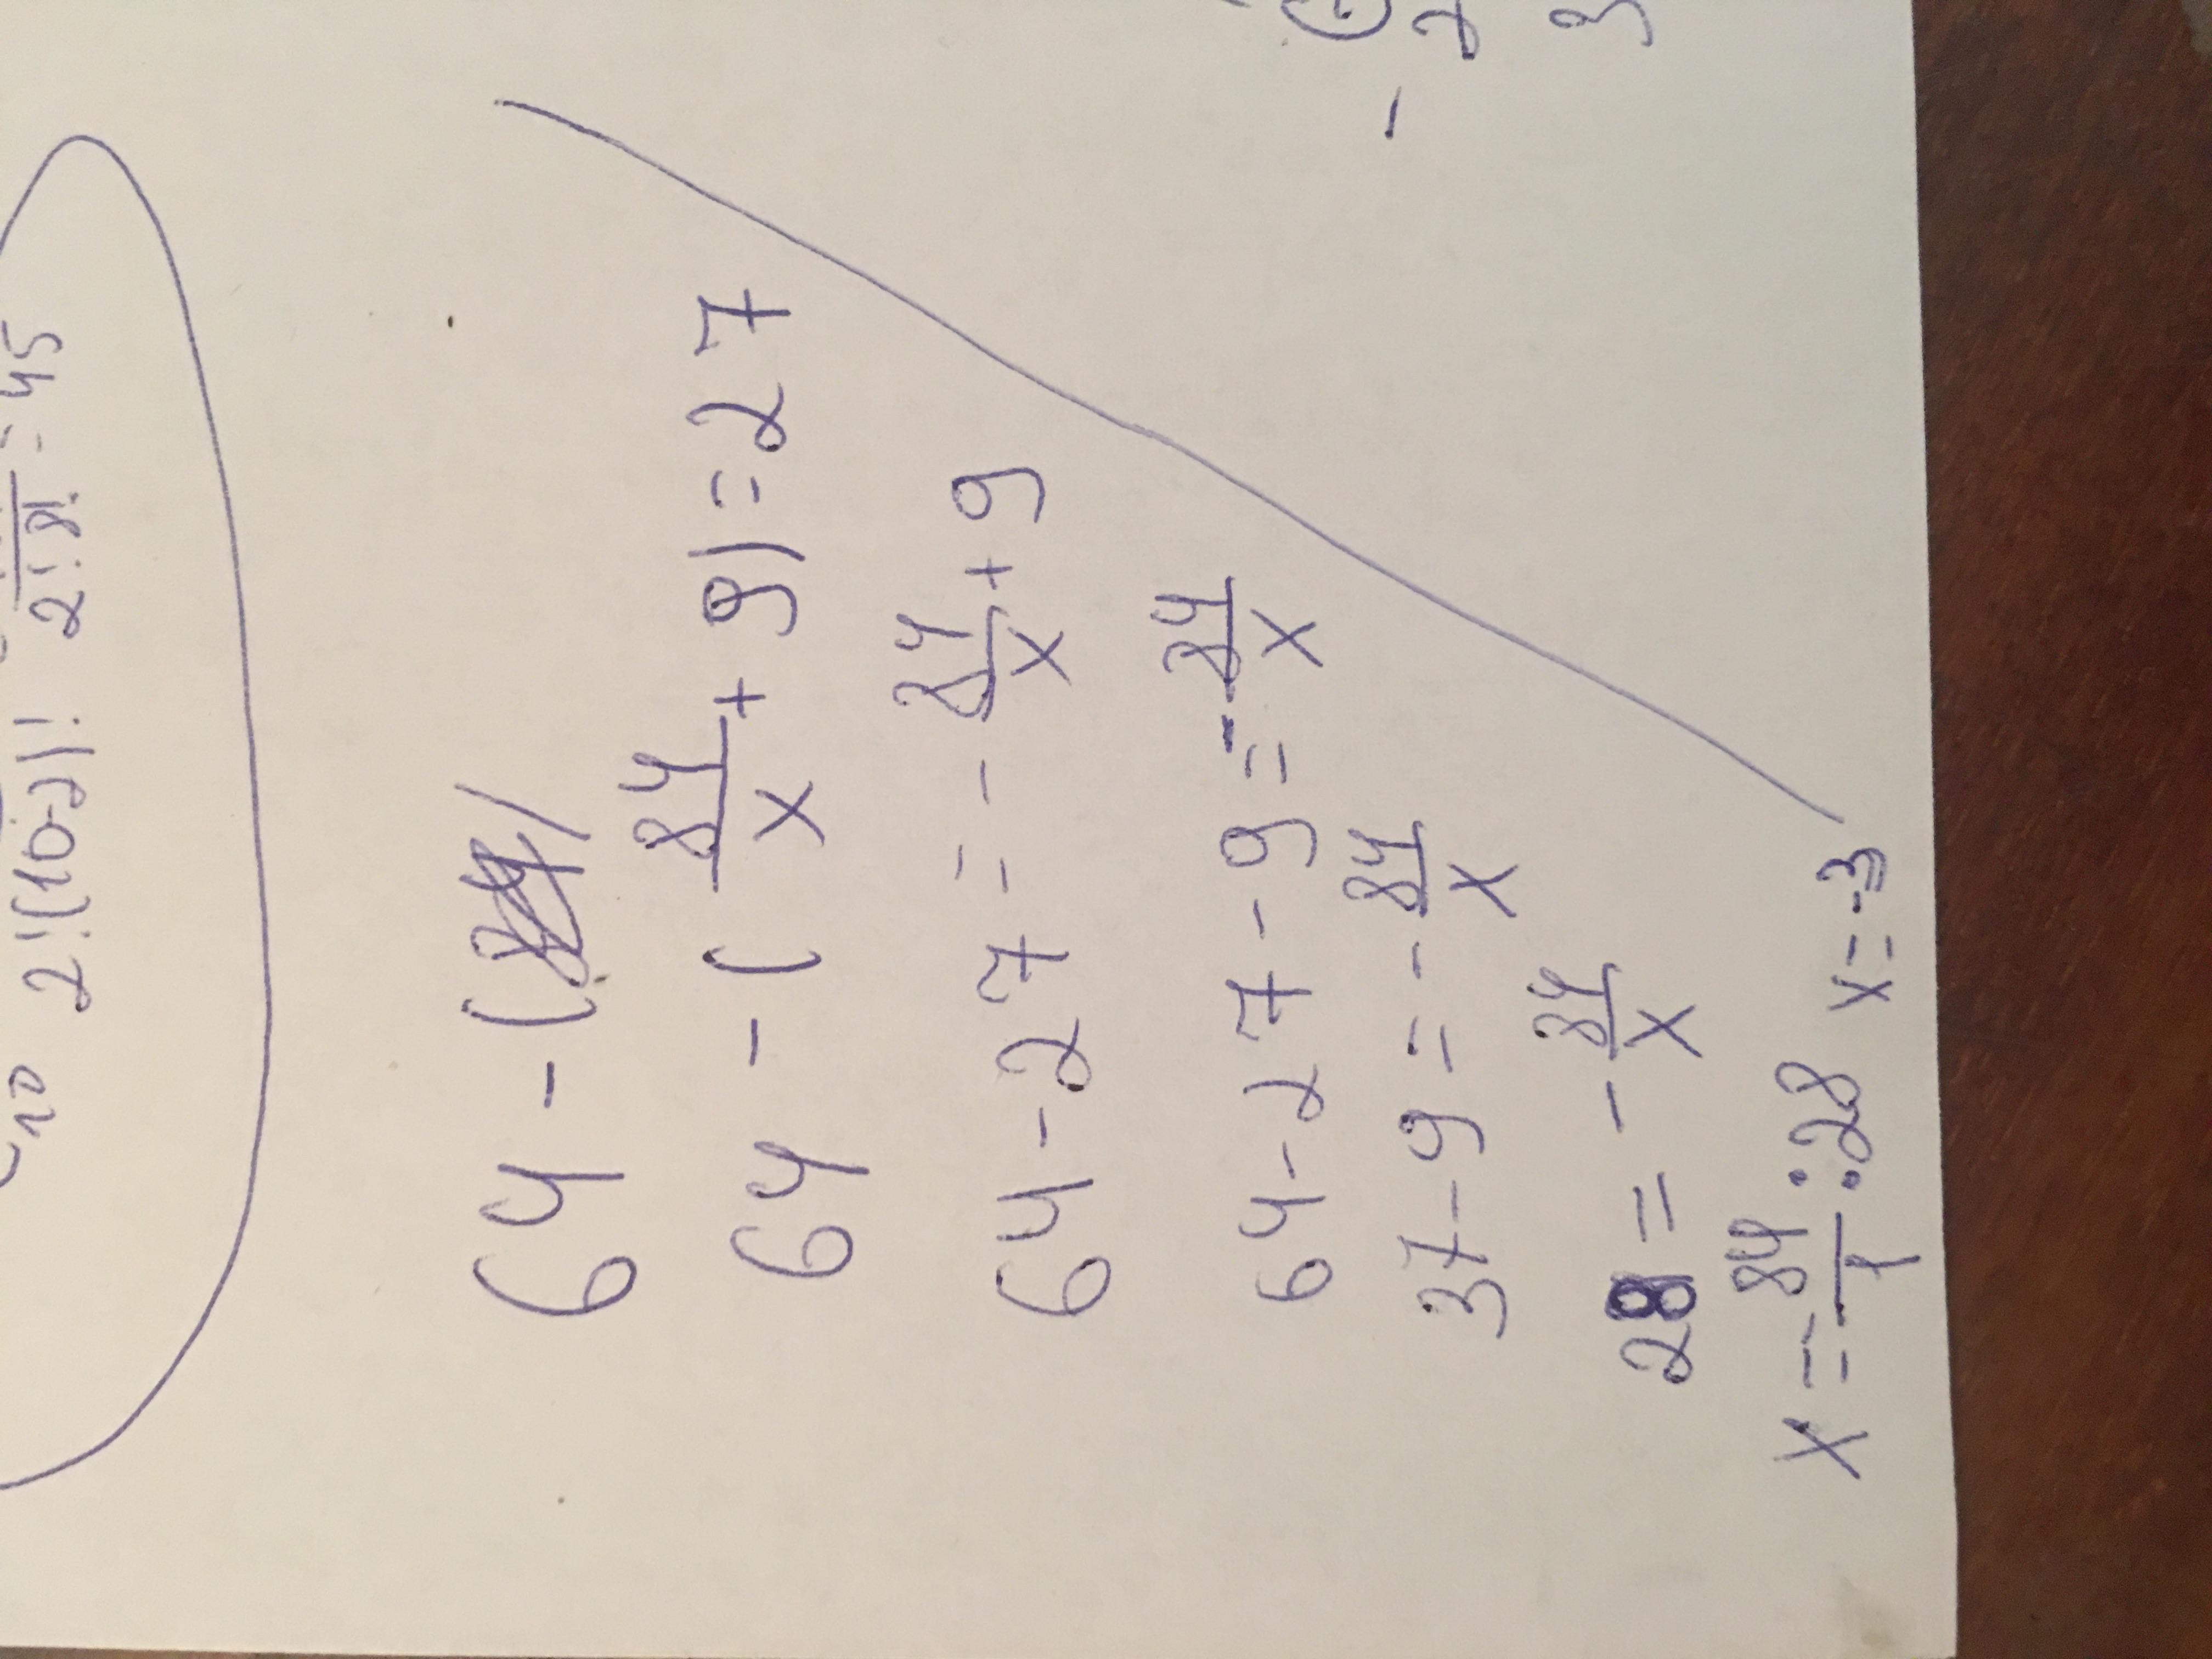 2!(10-2)! 2!8! = 45
64 - (
64 - ( 84/x + 9) = 27
64 - 27 = - 84/x + 9
64 - 27 - 9 = - 84/x
37 - 9 = - 84/x
28 = - 84/x
x = - 84/1 : 28 x = -3